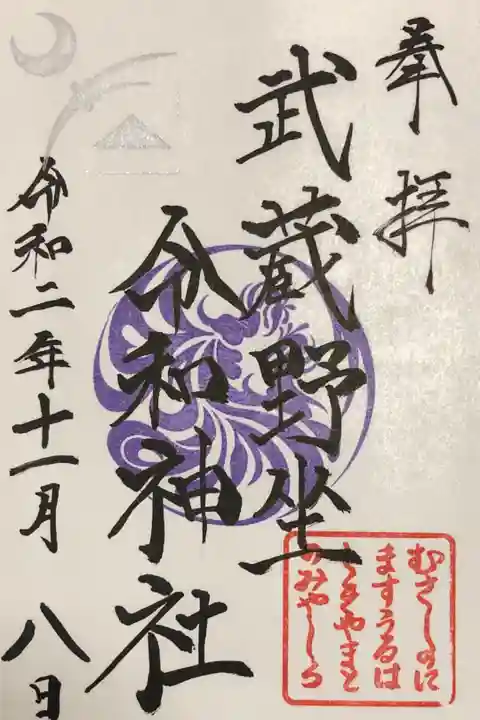 奉拝
武蔵野坐
令和神社
令和二年十一月八日
むさしのに
ますうるは
しきやまと
のみやしろ